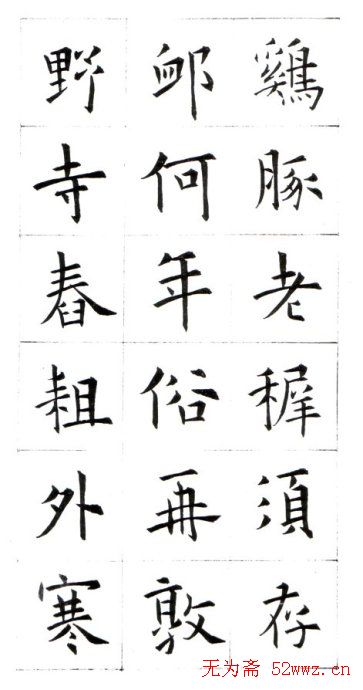 鷄豚老稺須存
卹何年俗再敦
野寺舂耝外寒
无为斋 52wwz.cn